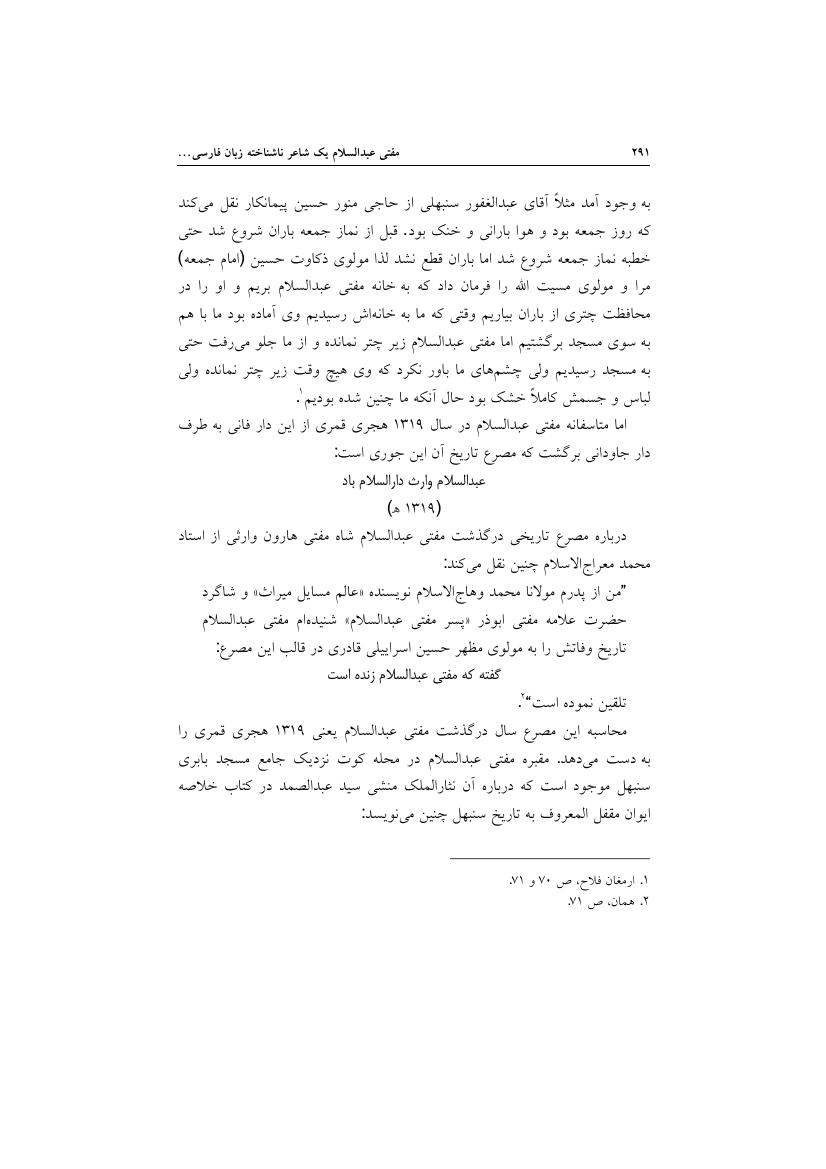 ۲۹۱ مفتی عبدالسلام یک شاعر ناشناخته زبان فارسی...
به وجود آمد مثلاً آقای عبدالغفور سنبهلی از حاجی منور حسین پیمانکار نقل می‌کند
که روز جمعه بود و هوا بارانی و خنک بود. قبل از نماز جمعه باران شروع شد حتی
خطبه نماز جمعه شروع شد اما باران قطع نشد لذا مولوی ذکاوت حسین (امام جمعه)
مرا و مولوی مسیت الله را فرمان داد که به خانه مفتی عبدالسلام بریم و او را در
محافظت چتری از باران بیاریم وقتی که ما به خانه‌اش رسیدیم وی آماده بود ما با هم
به سوی مسجد برگشتیم اما مفتی عبدالسلام زیر چتر نمانده و از ما جلو می‌رفت حتی
به مسجد رسیدیم ولی چشم‌های ما باور نکرد که وی هیچ وقت زیر چتر نمانده ولی
لباس و جسمش کاملاً خشک بود حال آنکه ما چنین شده بودیم۱.
اما متاسفانه مفتی عبدالسلام در سال ۱۳۱۹ هجری قمری از این دار فانی به طرف
دار جاودانی برگشت که مصرع تاریخ آن این جوری است:
عبدالسلام وارث دارالسلام باد
(۱۳۱۹ ه‍)
درباره مصرع تاریخی درگذشت مفتی عبدالسلام شاه مفتی هارون وارثی از استاد
محمد معراج‌الاسلام چنین نقل می‌کند:
”من از پدرم مولانا محمد وهاج‌الاسلام نویسنده «عالم مسایل میراث» و شاگرد
حضرت علامه مفتی ابوذر «پسر مفتی عبدالسلام» شنیده‌ام مفتی عبدالسلام
تاریخ وفاتش را به مولوی مظهر حسین اسراییلی قادری در قالب این مصرع:
گفته که مفتی عبدالسلام زنده است
تلقین نموده است“۲.
محاسبه این مصرع سال درگذشت مفتی عبدالسلام یعنی ۱۳۱۹ هجری قمری را
به دست می‌دهد. مقبره مفتی عبدالسلام در محله کوت نزدیک جامع مسجد بابری
سنبهل موجود است که درباره آن نثارالملک منشی سید عبدالصمد در کتاب خلاصه
ایوان مقفل المعروف به تاریخ سنبهل چنین می‌نویسد:
۱. ارمغان فلاح، ص ۷۰ و ۷۱.
۲. همان، ص ۷۱.